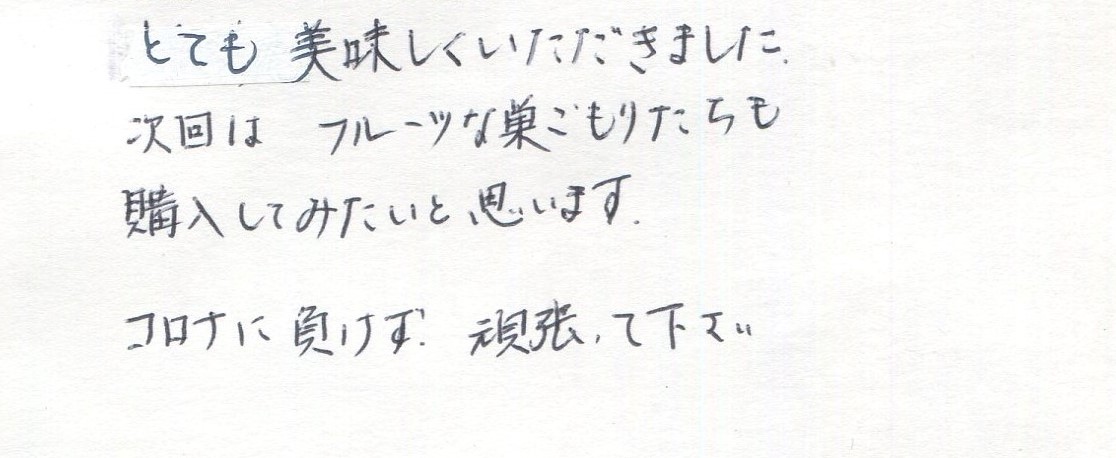 とても 美味しくいただきました.
次回は フルーツな巣ごもりたちも
購入してみたいと思います.
コロナに負けず. 頑張って下さい